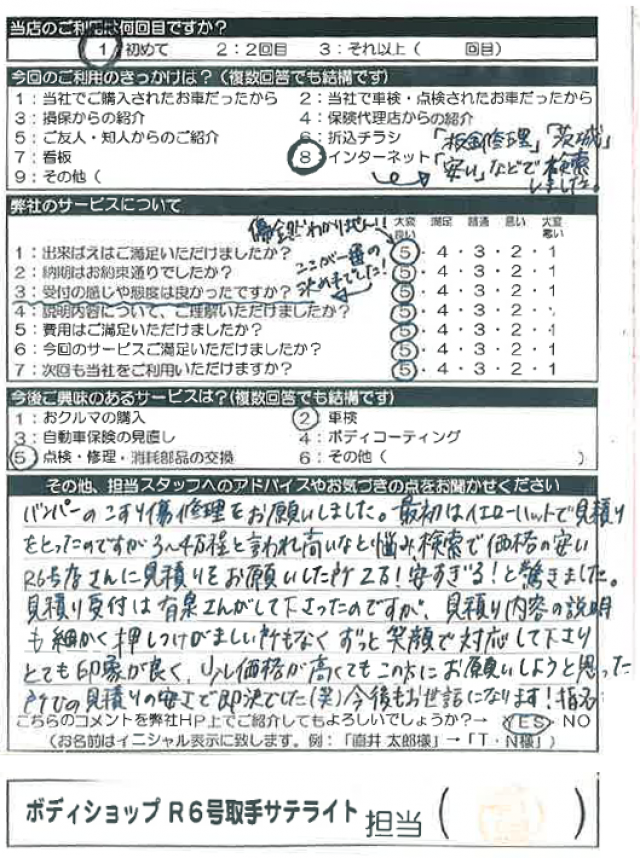 当店のご利用は何回目ですか？
1 初めて　2：2回目　3：それ以上（　　回目）
今回のご利用のきっかけは？（複数回答でも結構です）
1：当社でご購入されたお車だったから　2：当社で車検・点検されたお車だったから
3：損保からの紹介　4：保険代理店からの紹介
5：ご友人・知人からのご紹介　6：折込チラシ
7：看板　8：インターネット
9：その他（
「板金修理」「茨城」
「安い」などで検索
しました。
弊社のサービスについて
大変良い　満足　普通　悪い　大変悪い
1：出来ばえはご満足いただけましたか？　5・4・3・2・1
2：納期はお約束通りでしたか？　5・4・3・2・1
3：受付の感じや態度は良かったですか？　5・4・3・2・1
4：説明内容について、ご理解いただけましたか？　5・4・3・2・1
5：費用はご満足いただけましたか？　5・4・3・2・1
6：今回のサービスご満足いただけましたか？　5・4・3・2・1
7：次回も当社をご利用いただけますか？　5・4・3・2・1
ここが一番の
決め手でした！
今後ご興味のあるサービスは？（複数回答でも結構です）
1：おクルマの購入　2　車検
3：自動車保険の見直し　4：ボディコーティング
5　点検・修理・消耗部品の交換　6：その他（　　）
その他、担当スタッフへのアドバイスやお気づきの点をお聞かせください
バンパーのこすり傷修理をお願いしました。最初はイエローハットで見積り
をとったのですが3〜4万程と言われ高いなと悩み検索で価格の安い
R6号店さんに見積りをお願いした所2万！安すぎる！と驚きました。
見積り受付は有泉さんがして下さったのですが、見積り内容の説明
も細かく押しつけがましい所もなくずっと笑顔で対応して下さり
とても印象が良く、少し価格が高くてもこの方にお願いしようと思った
所での見積りの安さで即決でした（笑）今後もお世話になります！
こちらのコメントを弊社HP上でご紹介してもよろしいでしょうか？→　YES・NO
（お名前はイニシャル表示に致します。例：「直井 太郎様」→「T・N様」）
ボディショップ R6号取手サテライト 担当（　　）